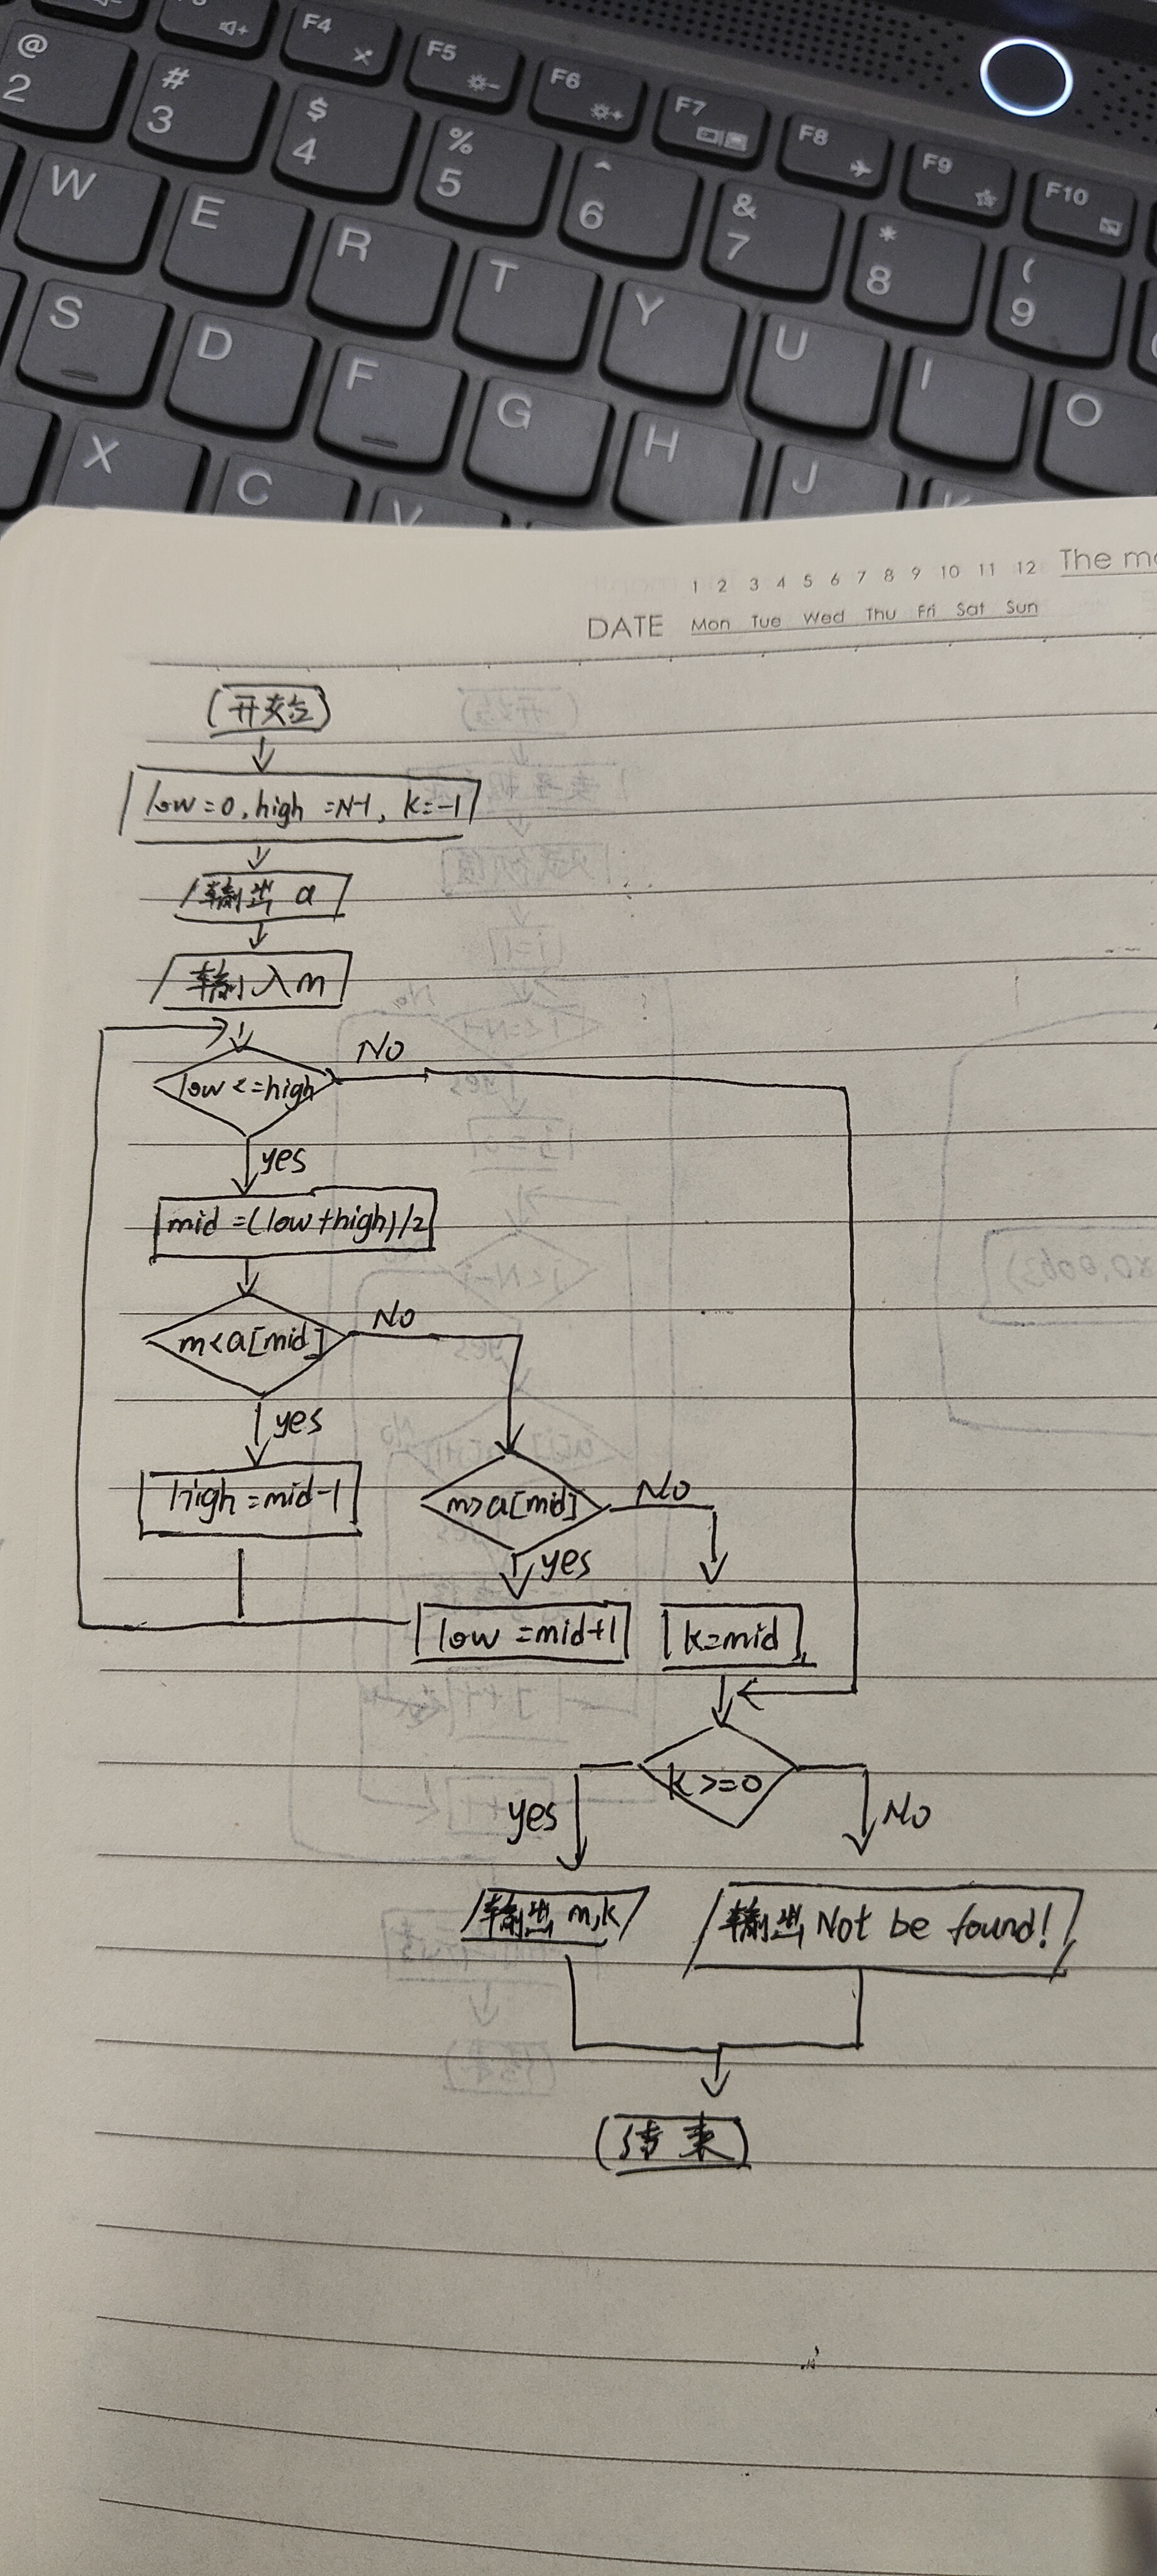 F4
F5
F6
F7
F8
F9
F10
@
2
#
3
$
4
%
5
^
6
&
7
*
8
(
9
W
E
R
T
Y
U
I
O
S
D
F
G
H
J
X
C
V
1 2 3 4 5 6 7 8 9 10 11 12
DATE Mon Tue Wed Thu Fri Sat Sun
The mo
开始
low=0, high =N-1, k=-1
输出 a
输入m
low<=high
No
yes
mid =(low+high)/2
m<a[mid]
No
yes
high=mid-1
m>a[mid]
No
yes
low =mid+1
k=mid
k>=0
yes
No
输出 m,k
输出 Not be found!
结束